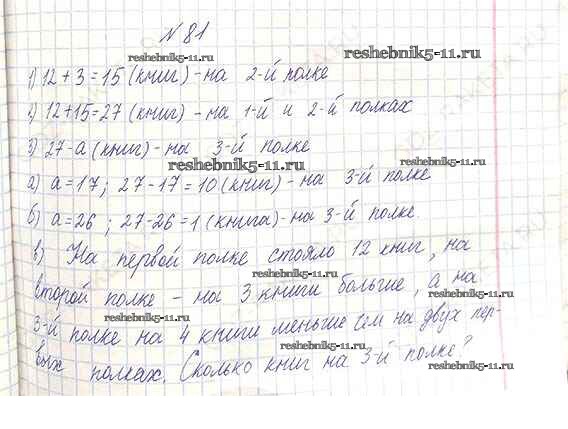 № 81
reshebnik5-11.ru
1) 12 + 3 = 15 (книг) - на 2-й полке
reshebnik5-11.ru
2) 12+15=27 (книг) - на 1-й и 2-й полках
3) 27-а (книг) - на 3-й полке
reshebnik5-11.ru
а) а=17; 27-17=10 (книг) - на 3-й полке
reshebnik5-11.ru
б) а=26; 27-26=1 (книга) - на 3-й полке.
в) На первой полке стояло 12 книг, на
reshebnik5-11.ru
второй полке - на 3 книги больше, а на
reshebnik5-11.ru
reshebnik5-11.ru
3-й полке на 4 книги меньше чем на двух пер-
вых полках. Сколько книг на 3-й полке?
reshebnik5-11.ru